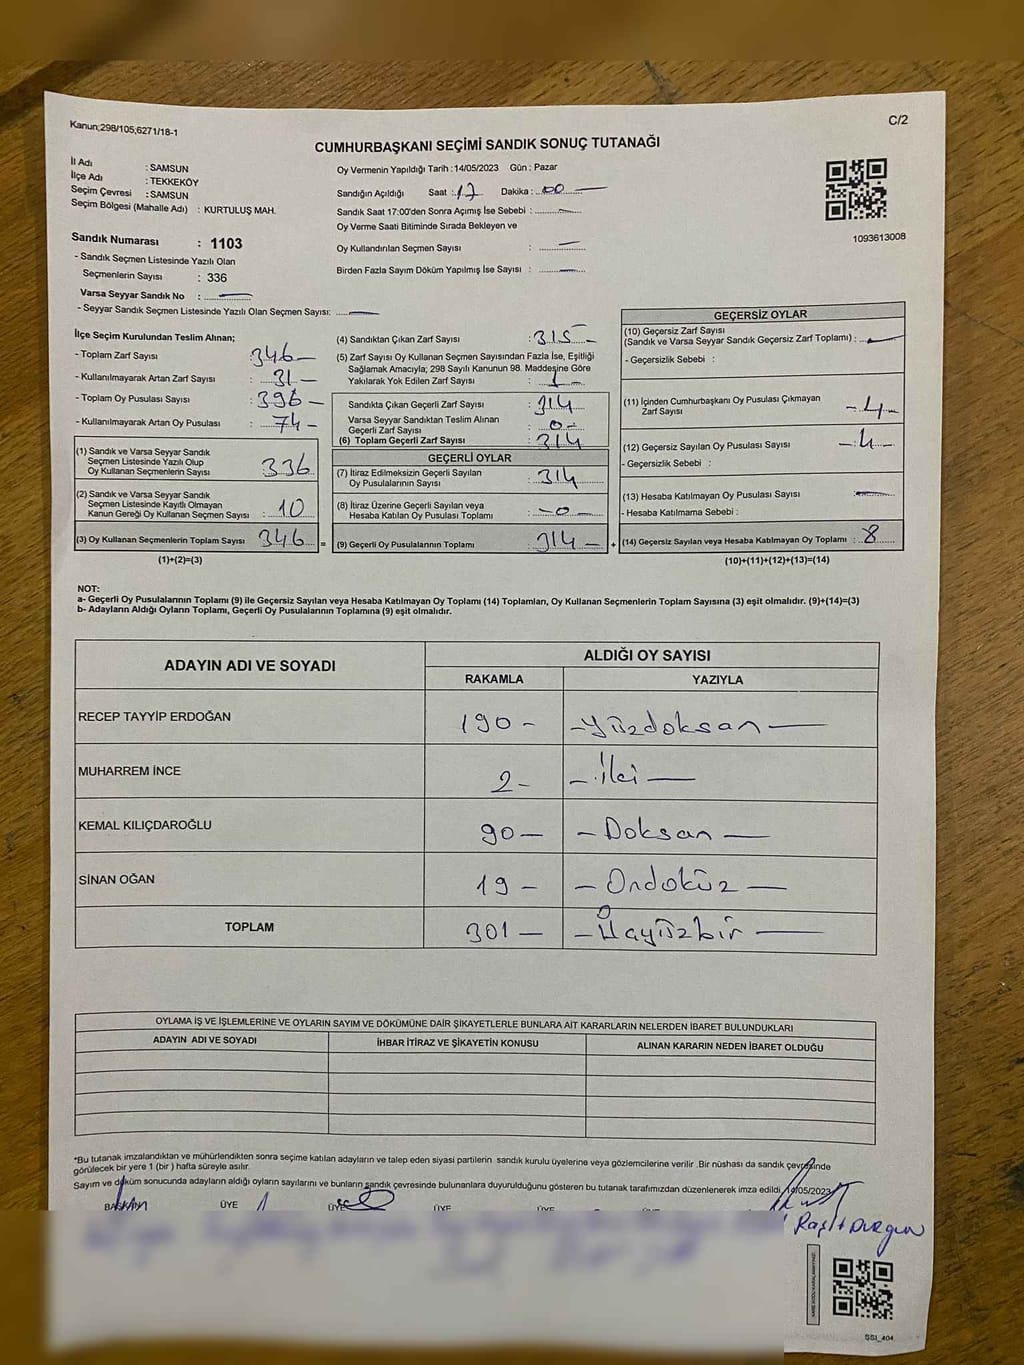 Kanun;298/105;6271/18-1
C/2
CUMHURBAŞKANI SEÇİMİ SANDIK SONUÇ TUTANAĞI
İl Adı : SAMSUN
İlçe Adı : TEKKEKÖY
Seçim Çevresi : SAMSUN
Seçim Bölgesi (Mahalle Adı) : KURTULUŞ MAH.
Sandık Numarası : 1103
- Sandık Seçmen Listesinde Yazılı Olan
Seçmenlerin Sayısı : 336
Varsa Seyyar Sandık No :
- Seyyar Sandık Seçmen Listesinde Yazılı Olan Seçmen Sayısı:
Oy Vermenin Yapıldığı Tarih :14/05/2023 Gün : Pazar
Sandığın Açıldığı Saat : 17 Dakika : 00
Sandık Saat 17:00'den Sonra Açımış İse Sebebi :
Oy Verme Saati Bitiminde Sırada Bekleyen ve
Oy Kullandırılan Seçmen Sayısı :
Birden Fazla Sayım Döküm Yapılmış İse Sayısı :
1093613008
İlçe Seçim Kurulundan Teslim Alınan;
- Toplam Zarf Sayısı : 346
- Kullanılmayarak Artan Zarf Sayısı : 31
- Toplam Oy Pusulası Sayısı : 396
- Kullanılmayarak Artan Oy Pusulası : 74
(1) Sandık ve Varsa Seyyar Sandık
Seçmen Listesinde Yazılı Olup
Oy Kullanan Seçmenlerin Sayısı : 336
(2) Sandık ve Varsa Seyyar Sandık
Seçmen Listesinde Kayıtlı Olmayan
Kanun Gereği Oy Kullanan Seçmen Sayısı : 10
(3) Oy Kullanan Seçmenlerin Toplam Sayısı : 346
(1)+(2)=(3)
(4) Sandıktan Çıkan Zarf Sayısı : 315
(5) Zarf Sayısı Oy Kullanan Seçmen Sayısından Fazla İse, Eşitliği
Sağlamak Amacıyla; 298 Sayılı Kanunun 98. Maddesine Göre
Yakılarak Yok Edilen Zarf Sayısı : 1
Sandıkta Çıkan Geçerli Zarf Sayısı : 314
Varsa Seyyar Sandıktan Teslim Alınan
Geçerli Zarf Sayısı : 0
(6) Toplam Geçerli Zarf Sayısı : 314
GEÇERLİ OYLAR
(7) İtiraz Edilmeksizin Geçerli Sayılan
Oy Pusulalarının Sayısı : 314
(8) İtiraz Üzerine Geçerli Sayılan veya
Hesaba Katılan Oy Pusulası Toplamı : 0
= (9) Geçerli Oy Pusulalarının Toplamı : 314 +
GEÇERSİZ OYLAR
(10) Geçersiz Zarf Sayısı
(Sandık ve Varsa Seyyar Sandık Geçersiz Zarf Toplamı) :
- Geçersizlik Sebebi :
(11) İçinden Cumhurbaşkanı Oy Pusulası Çıkmayan
Zarf Sayısı : -4-
(12) Geçersiz Sayılan Oy Pusulası Sayısı : -4-
- Geçersizlik Sebebi :
(13) Hesaba Katılmayan Oy Pusulası Sayısı :
- Hesaba Katılmama Sebebi :
(14) Geçersiz Sayılan veya Hesaba Katılmayan Oy Toplamı : 8
(10)+(11)+(12)+(13)=(14)
NOT:
a- Geçerli Oy Pusulalarının Toplamı (9) ile Geçersiz Sayılan veya Hesaba Katılmayan Oy Toplamı (14) Toplamları, Oy Kullanan Seçmenlerin Toplam Sayısına (3) eşit olmalıdır. (9)+(14)=(3)
b- Adayların Aldığı Oyların Toplamı, Geçerli Oy Pusulalarının Toplamına (9) eşit olmalıdır.
ADAYIN ADI VE SOYADI ALDIĞI OY SAYISI
RAKAMLA YAZIYLA
RECEP TAYYİP ERDOĞAN 190 - - Yüzdoksan -
MUHARREM İNCE 2 - - İki -
KEMAL KILIÇDAROĞLU 90 - - Doksan -
SİNAN OĞAN 19 - - Ondokuz -
TOPLAM 301 -
OYLAMA İŞ VE İŞLEMLERİNE VE OYLARIN SAYIM VE DÖKÜMÜNE DAİR ŞİKAYETLERLE BUNLARA AİT KARARLARIN NELERDEN İBARET BULUNDUKLARI
ADAYIN ADI VE SOYADI İHBAR İTİRAZ VE ŞİKAYETİN KONUSU ALINAN KARARIN NEDEN İBARET OLDUĞU
*Bu tutanak imzalandıktan ve mühürlendikten sonra seçime katılan adayların ve talep eden siyasi partilerin sandık kurulu üyelerine veya gözlemcilerine verilir .Bir nüshası da sandık çevresinde
görülecek bir yere 1 (bir ) hafta süreyle asılır.
Sayım ve döküm sonucunda adayların aldığı oyların sayılarını ve bunların sandık çevresinde bulunanlara duyurulduğunu gösteren bu tutanak tarafımızdan düzenlenerek imza edildi. 14/05/2023
BAŞKAN ÜYE ÜYE ÜYE ÜYE ÜYE
Raşit Durgun
SSI_404